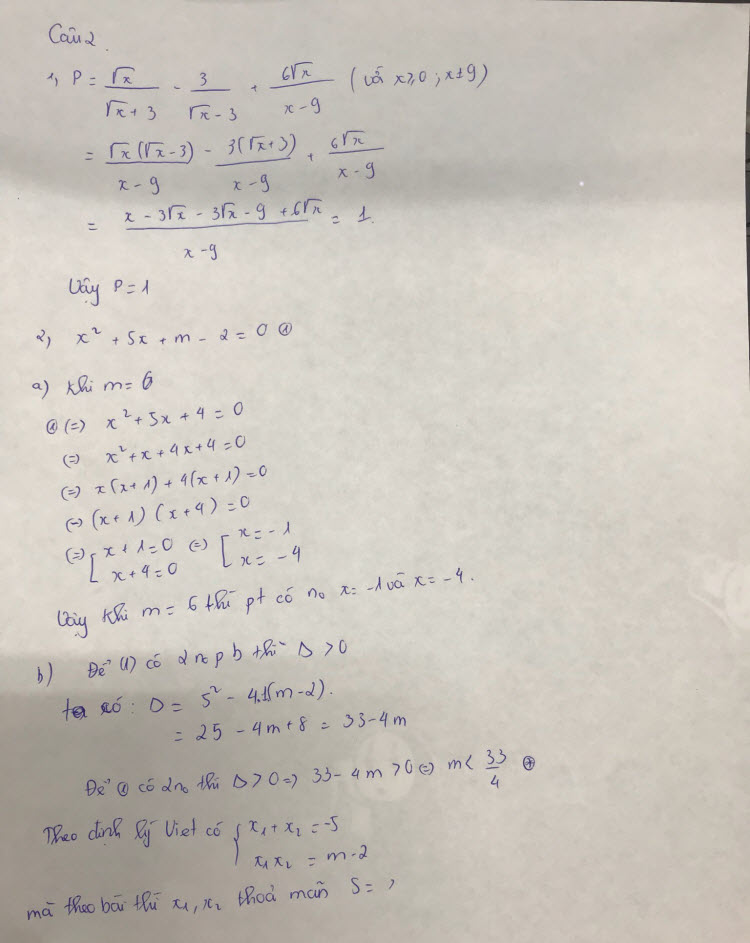 Câu 2
1, P = √x/(√x + 3) - 3/(√x - 3) + 6√x/(x - 9) (với x ≥ 0 ; x ≠ 9)
= √x(√x - 3)/(x - 9) - 3(√x + 3)/(x - 9) + 6√x/(x - 9)
= (x - 3√x - 3√x - 9 + 6√x)/(x - 9) = 1.
Vậy P = 1
2, x² + 5x + m - 2 = 0 ①
a) Khi m = 6
① (=) x² + 5x + 4 = 0
(=) x² + x + 4x + 4 = 0
(=) x(x + 1) + 4(x + 1) = 0
(=) (x + 1) (x + 4) = 0
(=) [ x + 1 = 0 (=) [ x = - 1
x + 4 = 0 x = - 4
Vậy khi m = 6 thì pt có no x = -1 và x = -4.
b) Để (1) có 2 no p b thì Δ > 0
ta có : Δ = 5² - 4.1(m - 2).
= 25 - 4m + 8 = 33 - 4m
Để ① có 2 no thì Δ > 0 => 33 - 4m > 0 (=) m < 33/4 ⊕
Theo định lý Viet có { x₁ + x₂ = -5
x₁ x₂ = m - 2
mà theo bài thì x₁, x₂ thoả mãn S =